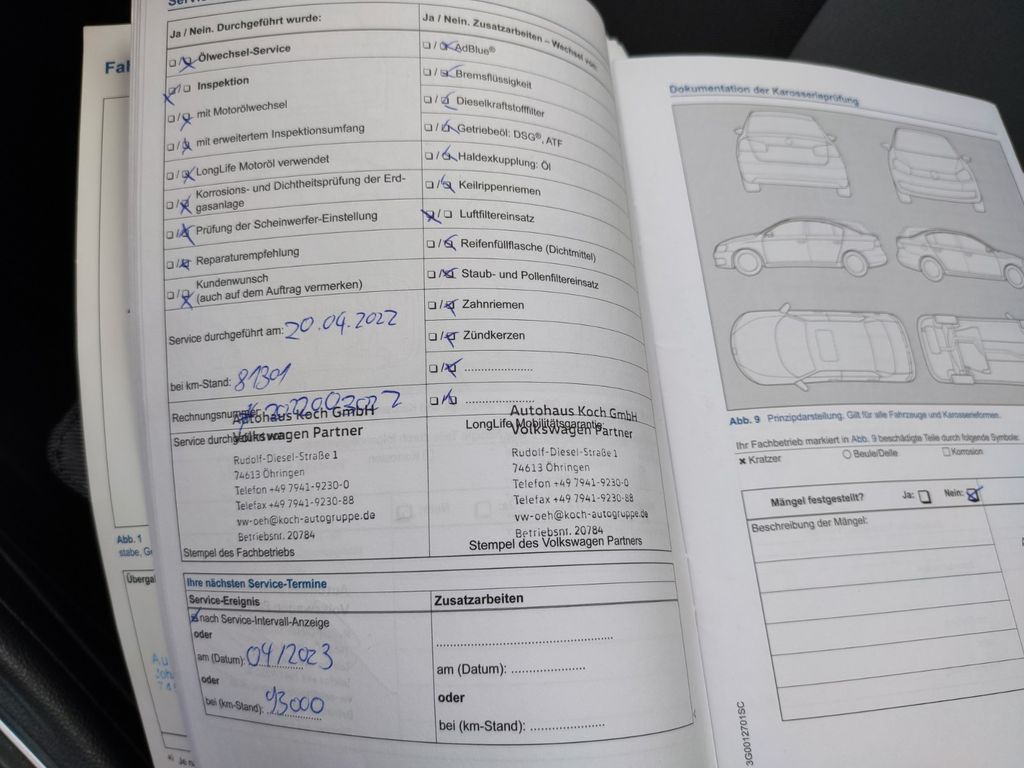 Ja / Nein. Durchgeführt wurde:
Ölwechsel-Service
Inspektion
mit Motorölwechsel
mit erweitertem Inspektionsumfang
LongLife Motoröl verwendet
Korrosions- und Dichtheitsprüfung der Erd-
gasanlage
Prüfung der Scheinwerfer-Einstellung
Reparaturempfehlung
Kundenwunsch
(auch auf dem Auftrag vermerken)
Service durchgeführt am: 20.04.2022
bei km-Stand: 81301
Rechnungsnummer:
Service durchgeführt von:
Autohaus Koch GmbH
Volkswagen Partner
Rudolf-Diesel-Straße 1
74613 Öhringen
Telefon +49 7941-9230-0
Telefax +49 7941-9230-88
vw-oeh@koch-autogruppe.de
Betriebsnr. 20784
Stempel des Fachbetriebs
Ja / Nein. Zusatzarbeiten – Wechsel von:
AdBlue®
Bremsflüssigkeit
Dieselkraftstofffilter
Getriebeöl: DSG®, ATF
Haldexkupplung: Öl
Keilrippenriemen
Luftfiltereinsatz
Reifenfüllflasche (Dichtmittel)
Staub- und Pollenfiltereinsatz
Zahnriemen
Zündkerzen
LongLife Mobilitätsgarantie
Autohaus Koch GmbH
Volkswagen Partner
Rudolf-Diesel-Straße 1
74613 Öhringen
Telefon +49 7941-9230-0
Telefax +49 7941-9230-88
vw-oeh@koch-autogruppe.de
Betriebsnr. 20784
Stempel des Volkswagen Partners
Ihre nächsten Service-Termine
Service-Ereignis
nach Service-Intervall-Anzeige
oder
am (Datum): 04/2023
oder
bei (km-Stand): 93000
Zusatzarbeiten
am (Datum):
oder
bei (km-Stand):
Dokumentation der Karosserieprüfung
Abb. 9 Prinzipdarstellung. Gilt für alle Fahrzeuge und Karosserieformen.
Ihr Fachbetrieb markiert in Abb. 9 beschädigte Teile durch folgende Symbole:
Kratzer
Beule/Delle
Korrosion
Mängel festgestellt? Ja: Nein:
Beschreibung der Mängel:
3G0012701SC
Abb. 1